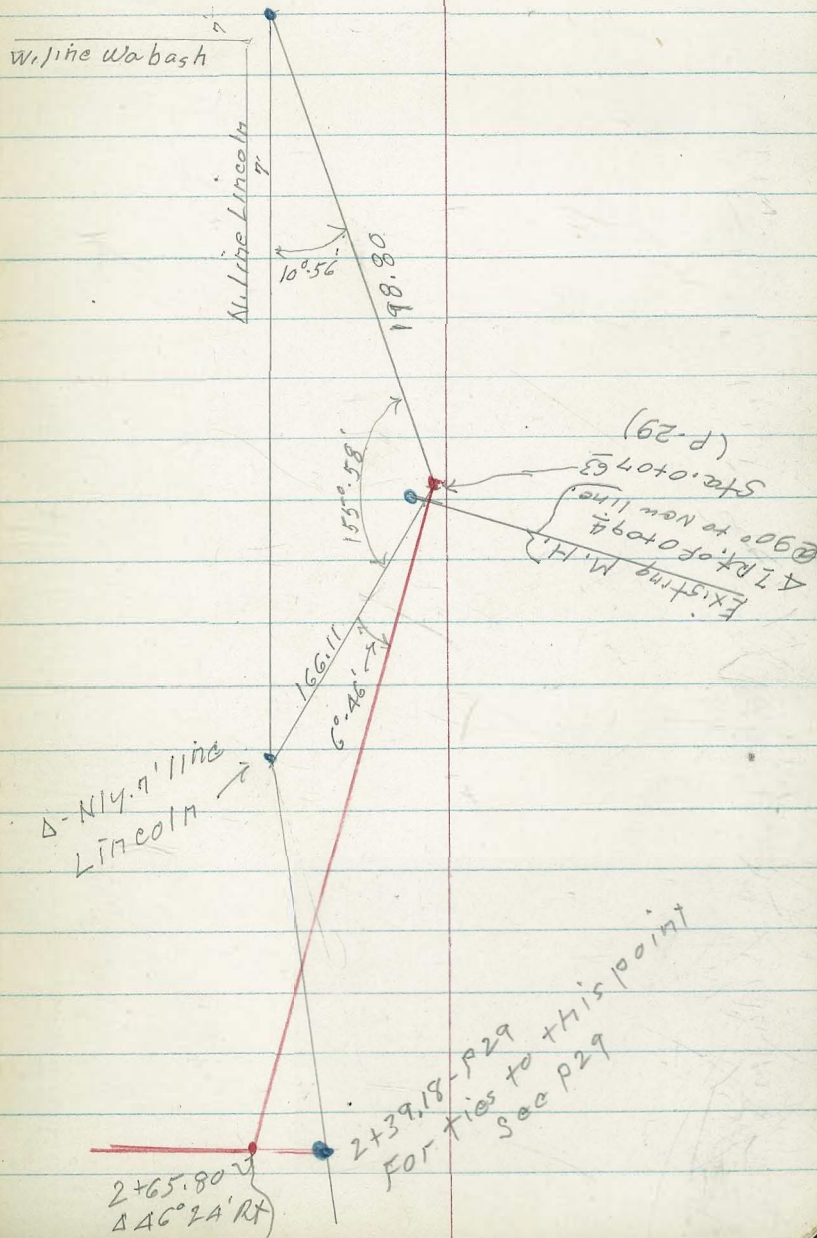 7'
W. line Wabash
N. line Lincoln
7'
10°-56'
198.80
155°-58'
(P-29)
Sta. 0+07 63
@ 90° to New line.
Rt. of 0+09 4
Existing M.H.
166.11
6°-46'
Δ-Nly. 7' line
Lincoln
2+39.18-P29
For ties to this point
See P29
2+65.80
Δ 46°24' Rt